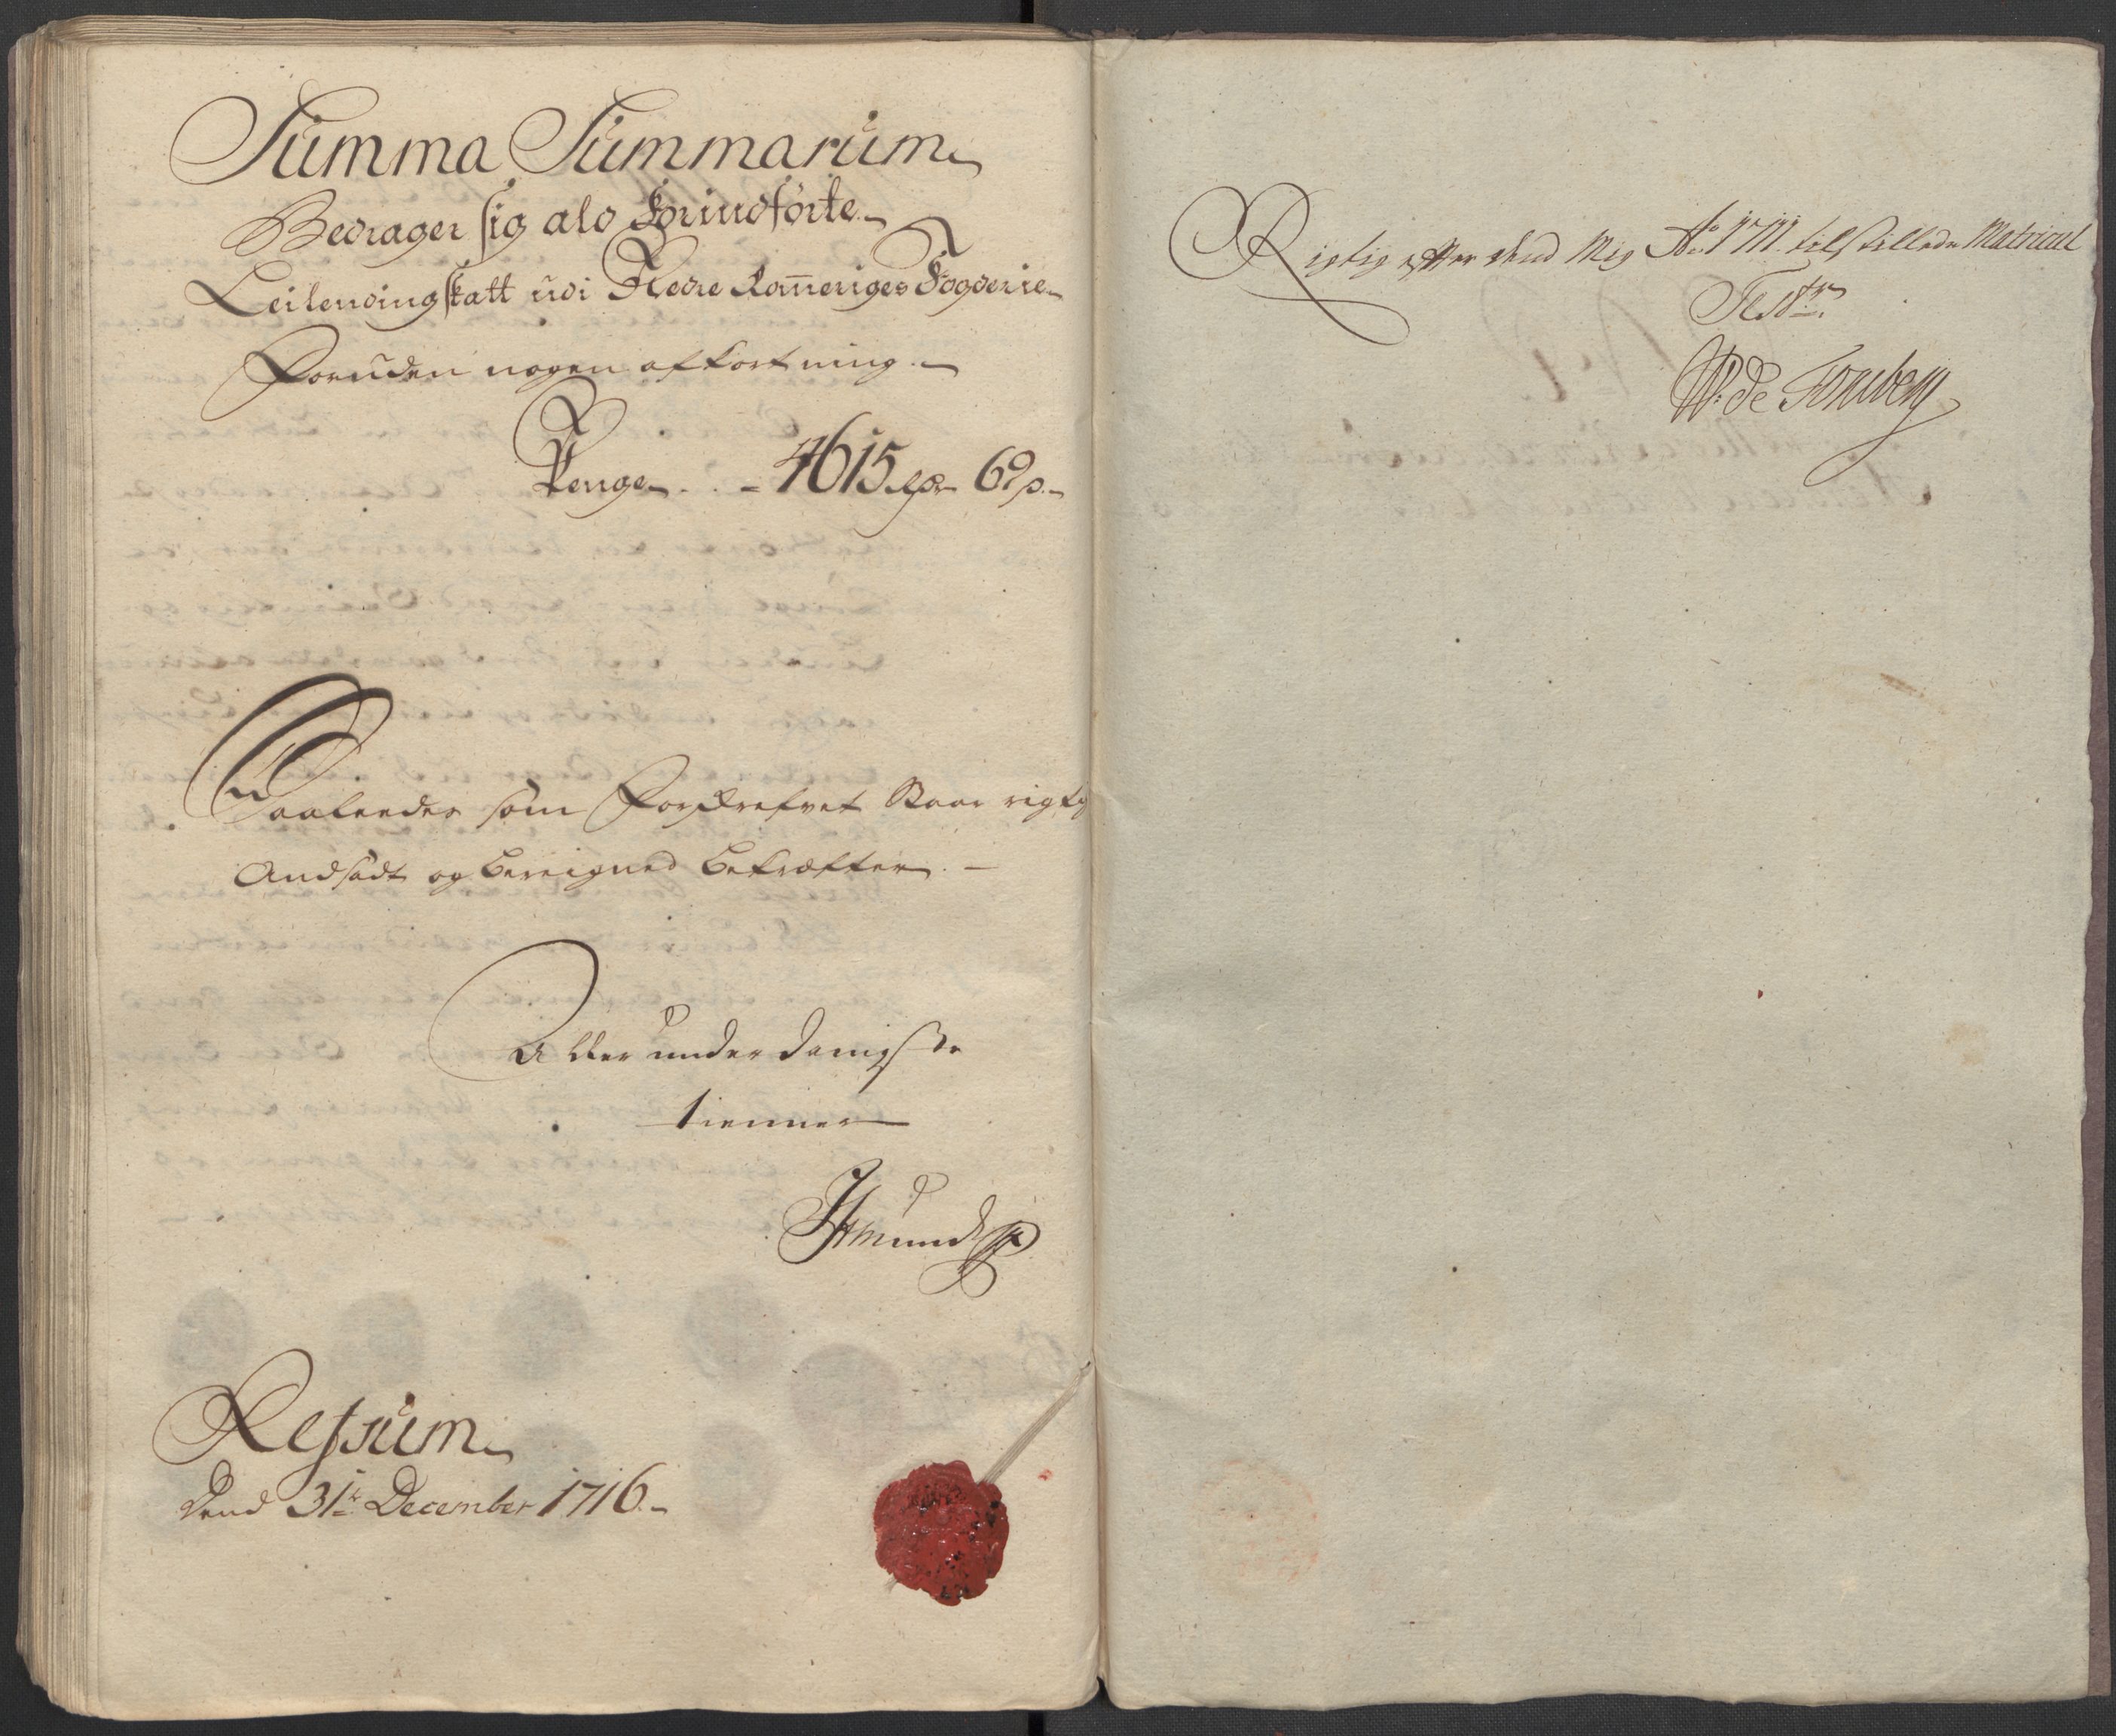 Summa Summarum
Bedrager sig als Forindførte
Leilendingskatt udi Nedre Romeriges Fogderie
Foruden nogen afkortning
Penge - 4615 rdr 69 s.
Saaleedes som Forskrefvet Staar rigtig
Andsadt og bereigned bekræfter
Aller underdanigste
tienner
Riisum
Dend 31te December 1716
Rigtig efter dend Mig Ao 1711 tilstillede Matricul
Test:
W: de Tonsberg